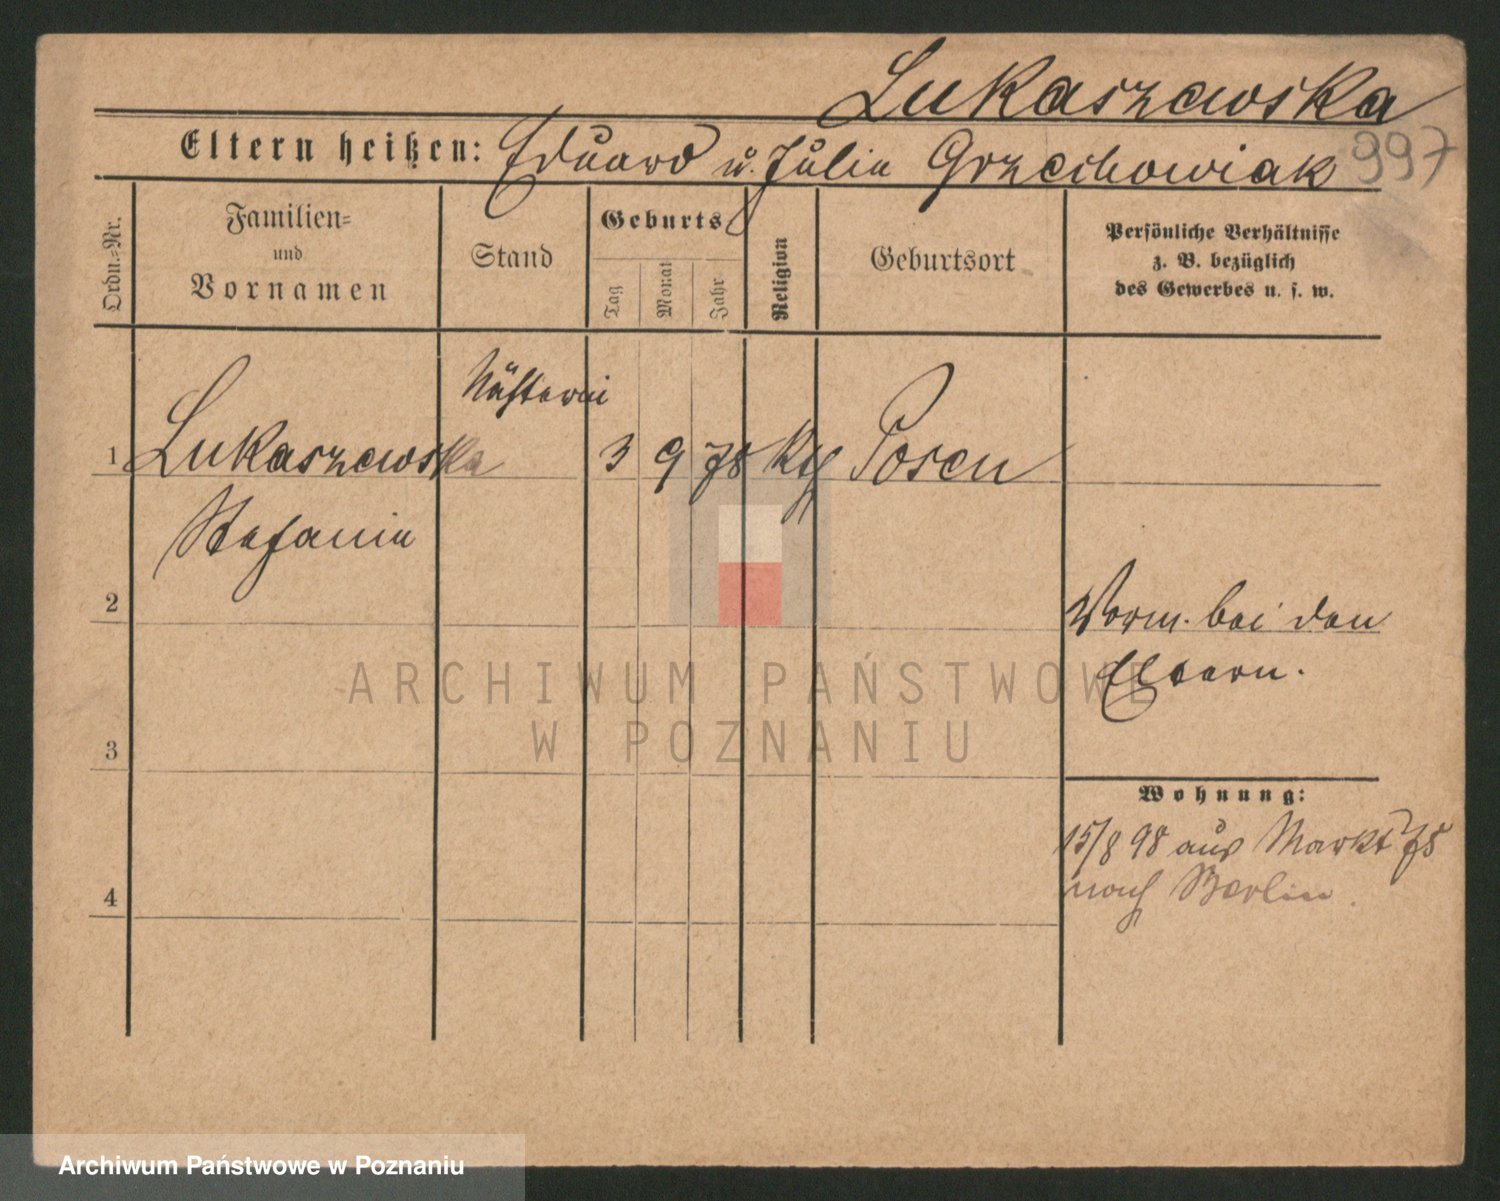 Lukaszewska
Eltern heißen: Eduard u. Julia Grzechowiak
997
Ordn.-Nr.
Familien-
und
Vornamen
Stand
Geburts
Tag
Monat
Jahr
Religion
Geburtsort
Persönliche Verhältnisse
z. B. bezüglich
des Gewerbes u. s. w.
Nähterin
1 Lukaszewska 3 9 78 Kth Posen
Stefania
2
Vorm. bei den
Eltern.
ARCHIWUM PAŃSTWOWE
W POZNANIU
3
Wohnung:
15/8 98 aus Markt 78
nach Berlin.
4
Archiwum Państwowe w Poznaniu